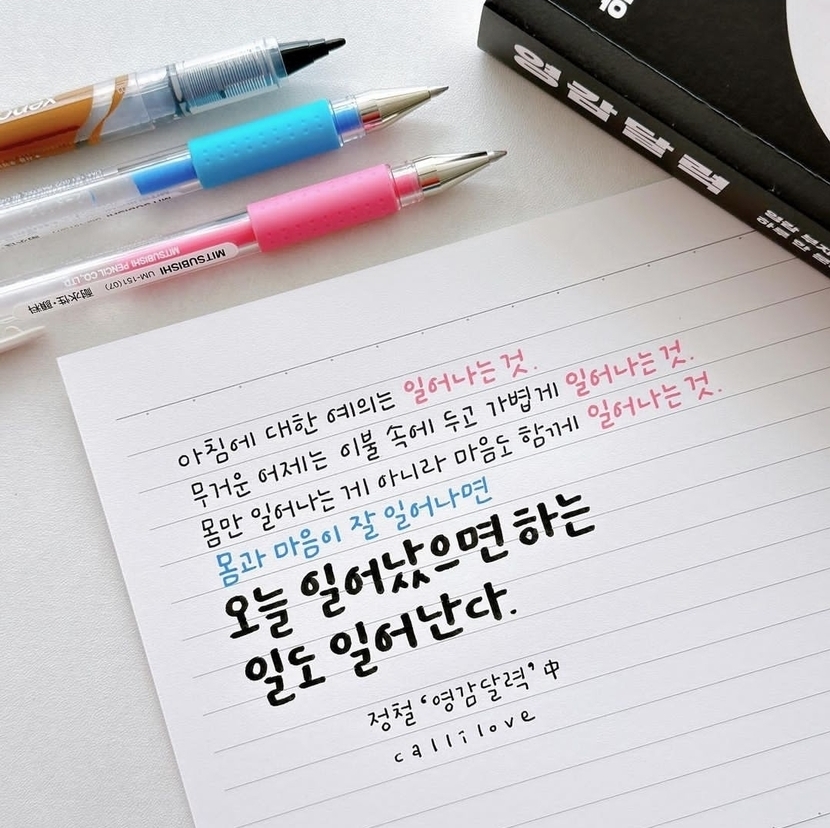 영감달력
MITSUBISHI UM-151(07) 耐水性・顔料
MITSUBISHI PENCIL CO., LTD
아침에 대한 예의는 일어나는 것.
무거운 어제는 이불 속에 두고 가볍게 일어나는 것.
몸만 일어나는 게 아니라 마음도 함께 일어나는 것.
몸과 마음이 잘 일어나면
오늘 일어났으면 하는
일도 일어난다.
정철 '영감달력' 中
callilove